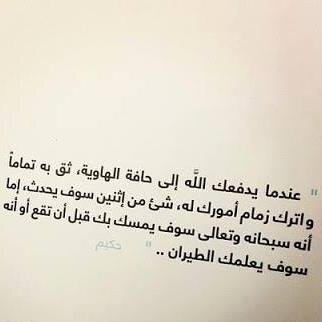 " عندما يدفعك اللَّه إلى حافة الهاوية، ثق به تماماً
و اترك زمام أمورك له، شئ من إثنين سوف يحدث، إما
أنه سبحانه وتعالى سوف يمسك بك قبل أن تقع أو أنه
سوف يعلمك الطيران .. " حكيم